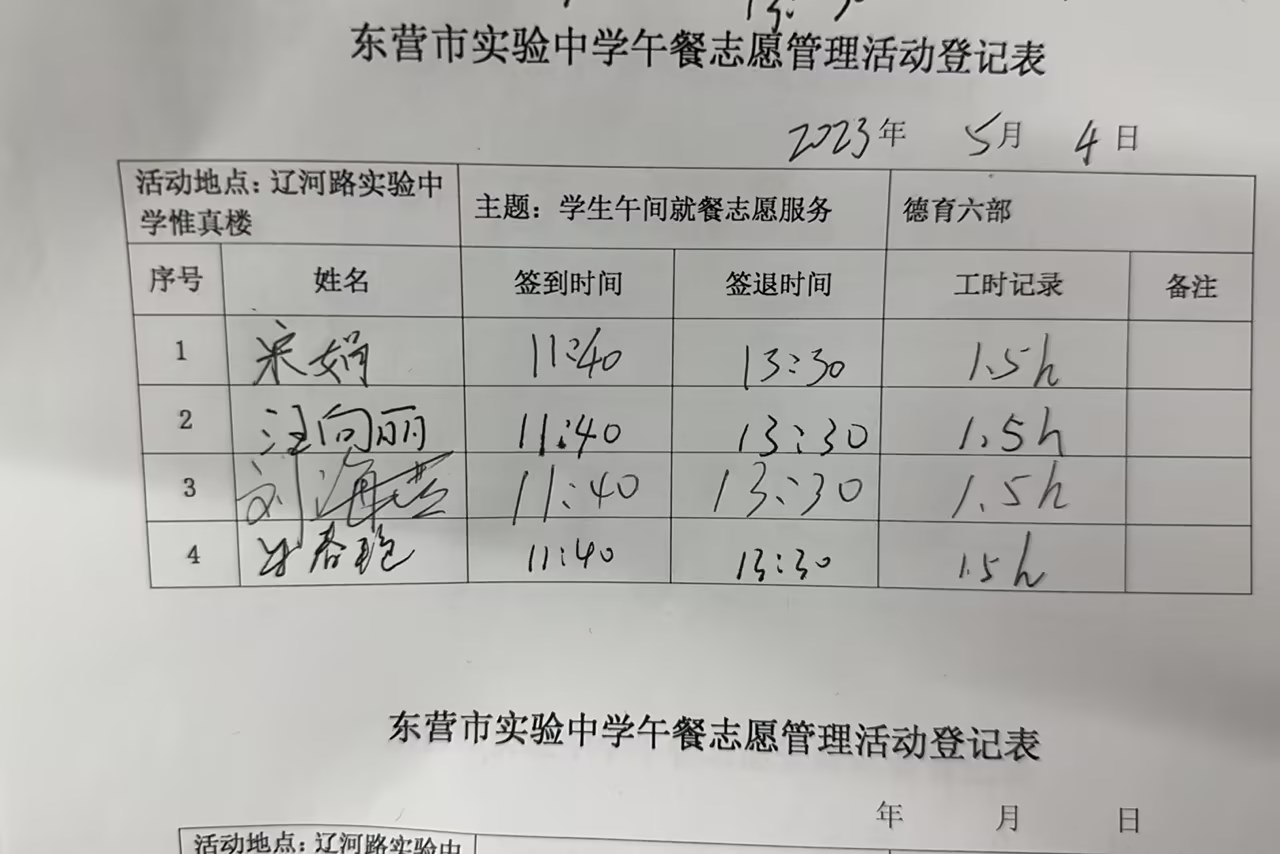 13:30
东营市实验中学午餐志愿管理活动登记表
2023年 5月 4日
活动地点：辽河路实验中
学惟真楼
主题：学生午间就餐志愿服务
德育六部
序号 姓名 签到时间 签退时间 工时记录 备注
1 宋娟 11:40 13:30 1.5h
2 汪向丽 11:40 13:30 1.5h
3 刘海燕 11:40 13:30 1.5h
4 11:40 13:30 1.5h
东营市实验中学午餐志愿管理活动登记表
年 月 日
活动地点：辽河路实验中